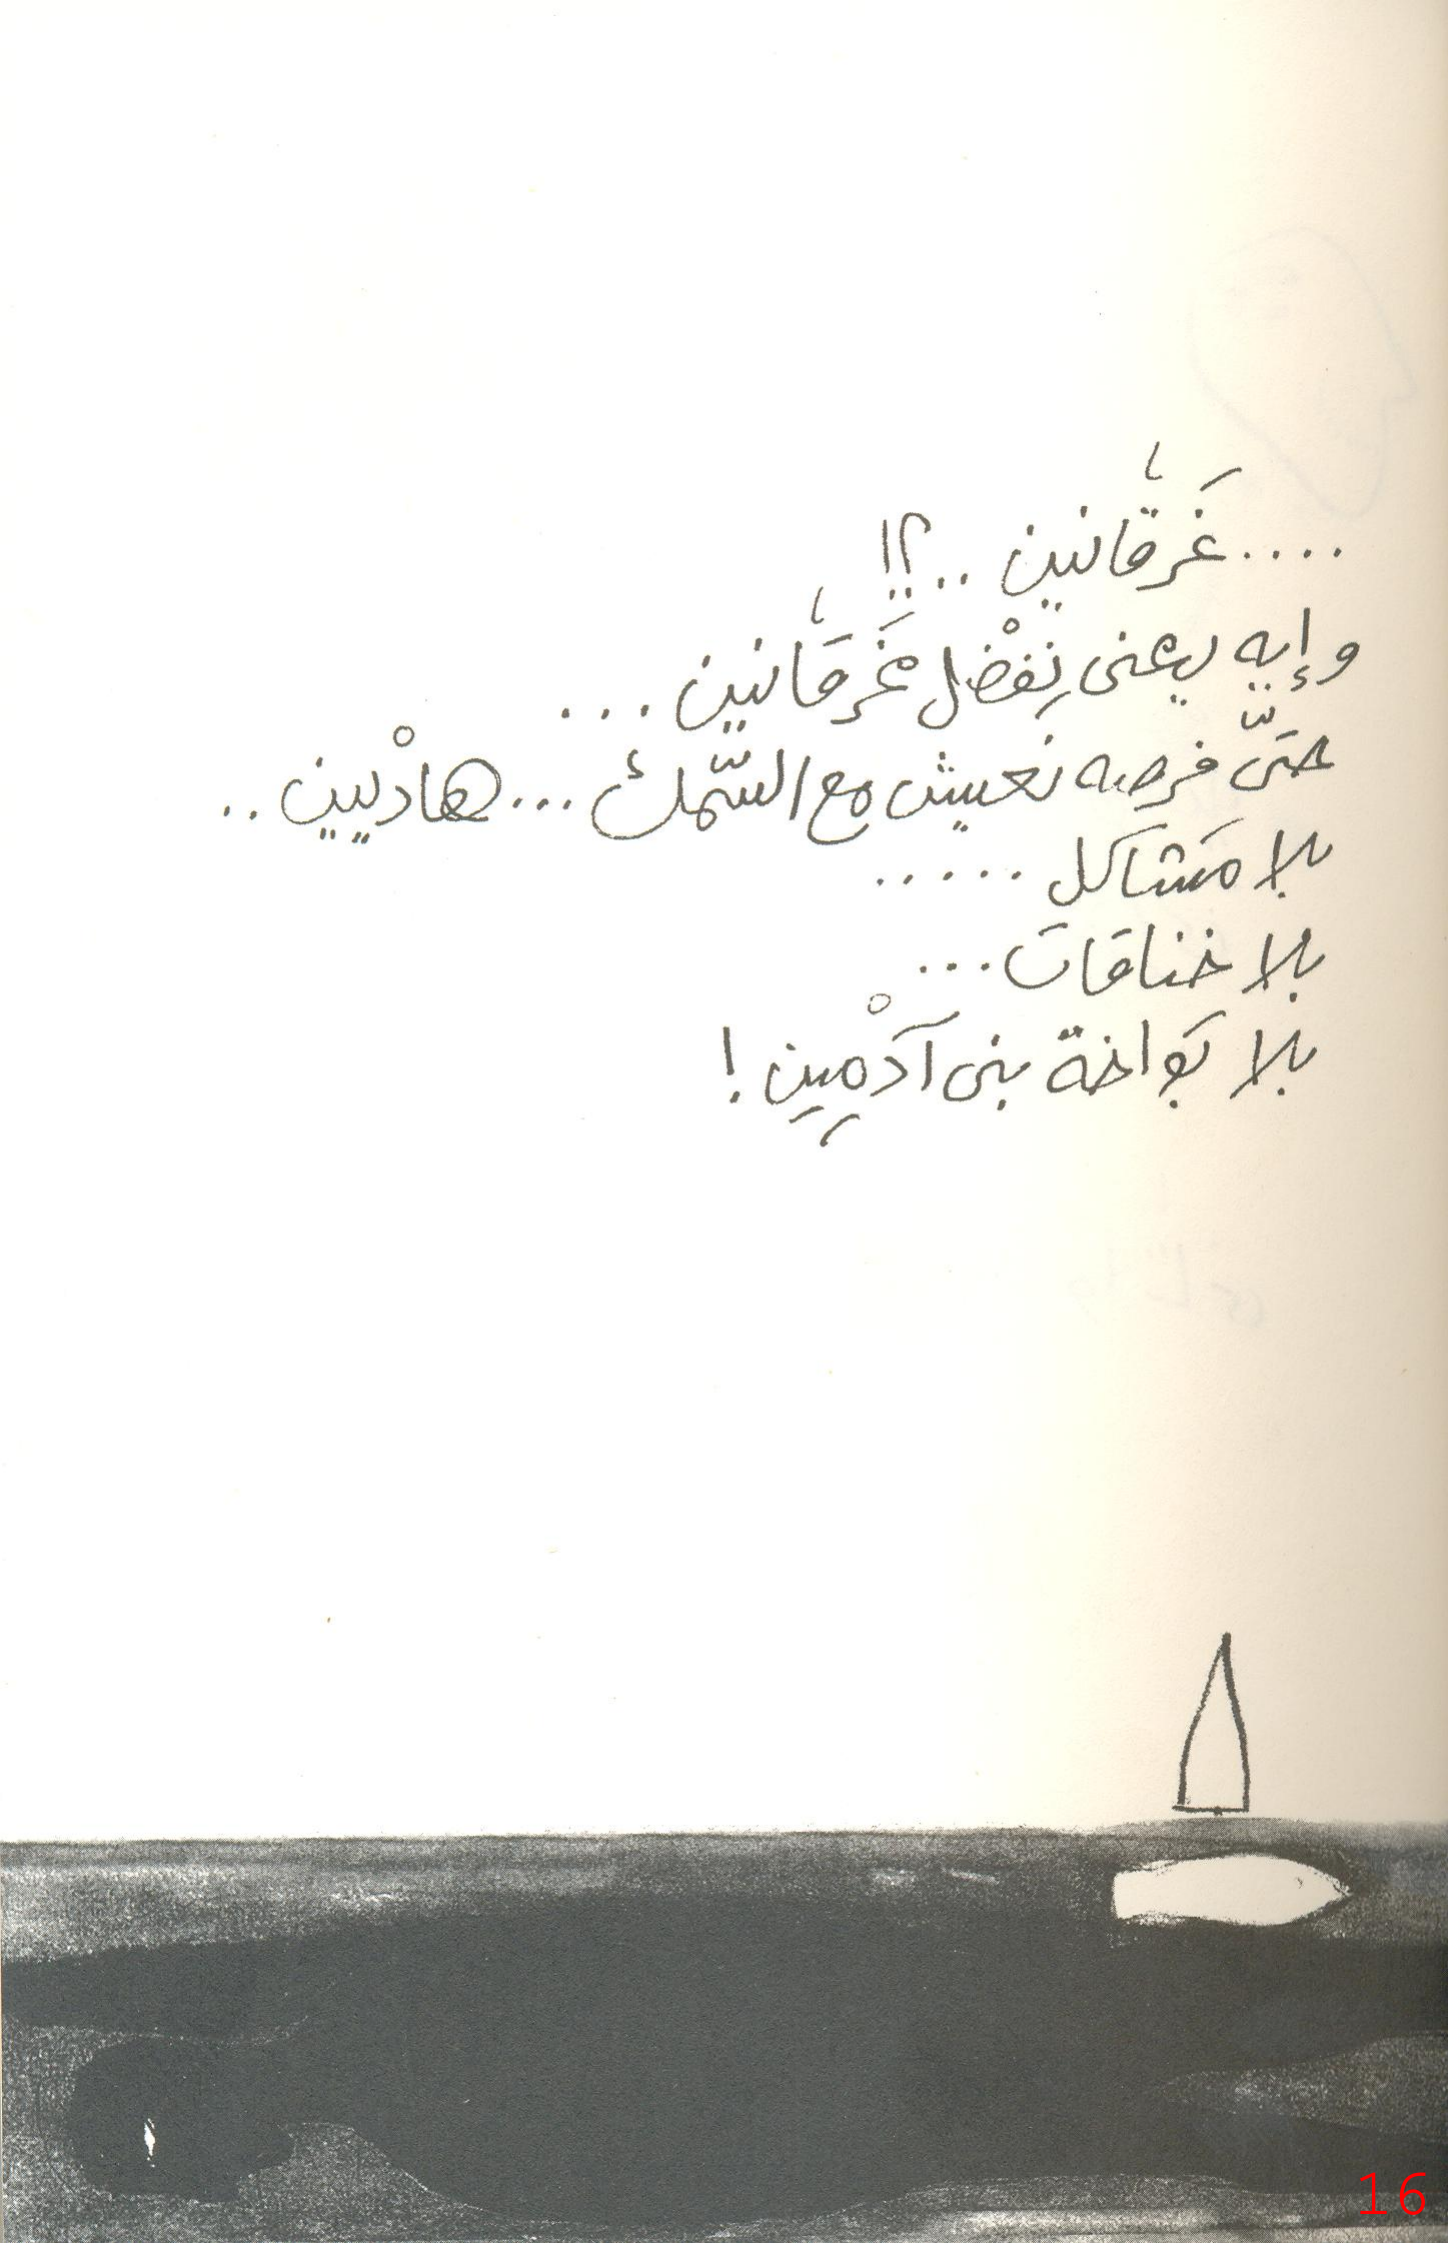 ....غَرقَانين ..؟!
وإيه يعنى نِفضْل غَرقَانين ...
حتَّى فرصه نعيش مع السَّمك ...هادْيين ..
بلا مَشاكل .....
بلا خناقات ...
بلا بَواخة بنى آدْمِين !
16